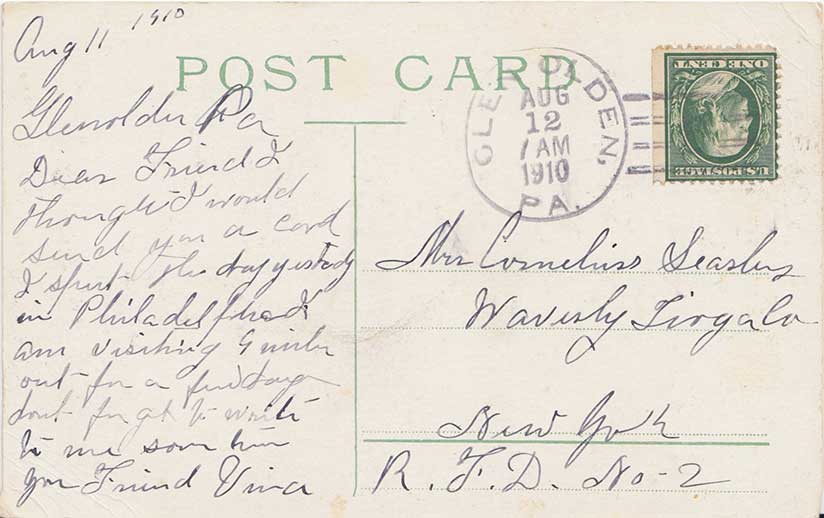 Aug 11 1910
POST CARD
Glenolden Pa
Dear Friend I
thought I would
send you a card
I spent the day yestedy
in Philadelphia I
am visiting 9 miles
out for a few days
dont forget to write
to me som time
your Friend Vina
GLENOLDEN,
AUG
12
7 AM
1910
PA.
U.S. POSTAGE
ONE CENT
Mrs Cornelius
Waverly Tioga Co
New York
R. F. D. No-2